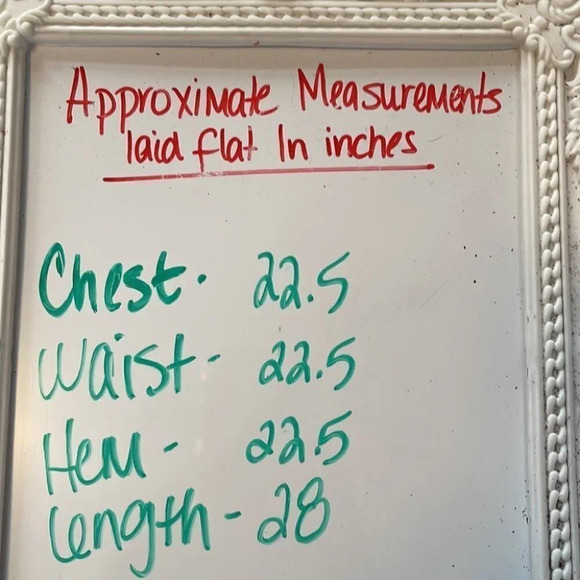 Approximate Measurements
laid flat In inches
Chest. 22.5
Waist - 22.5
Hem - 22.5
Length - 28